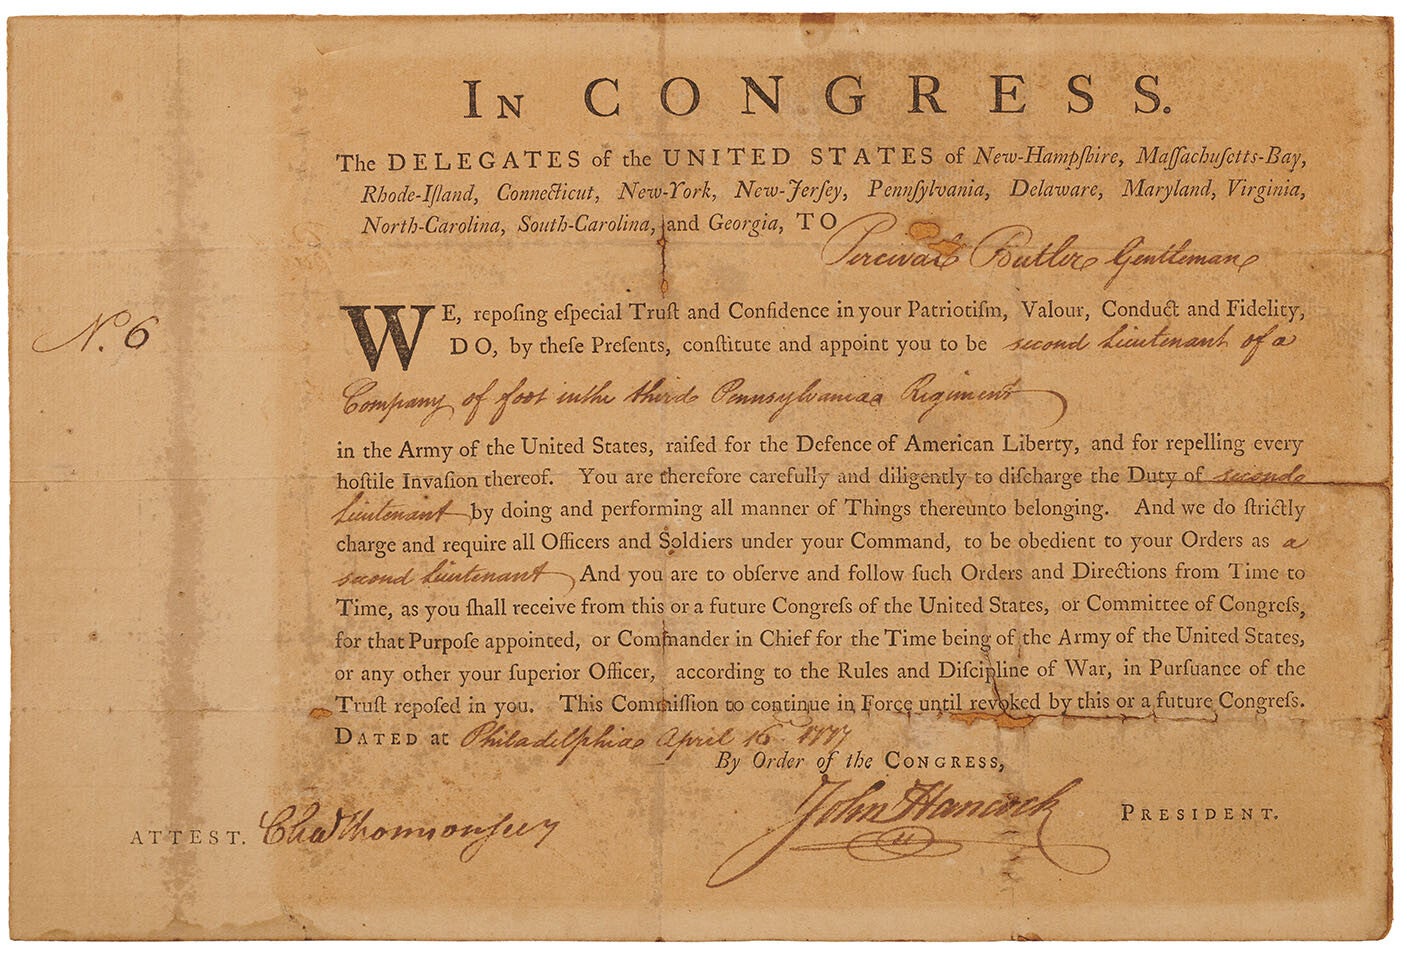 In CONGRESS.
The DELEGATES of the UNITED STATES of New-Hampſhire, Maſſachuſetts-Bay,
Rhode-Iſland, Connecticut, New-York, New-Jerſey, Pennſylvania, Delaware, Maryland, Virginia,
North-Carolina, South-Carolina, and Georgia, TO
Percival Butler Gentleman
N.º 6
WE, repoſing eſpecial Truſt and Confidence in your Patriotiſm, Valour, Conduct and Fidelity,
DO, by theſe Preſents, conſtitute and appoint you to be second Lieutenant of a
Company of foot in the third Pennsylvania Regiment
in the Army of the United States, raiſed for the Defence of American Liberty, and for repelling every
hoſtile Invaſion thereof. You are therefore carefully and diligently to diſcharge the Duty of second
Lieutenant by doing and performing all manner of Things thereunto belonging. And we do ſtrictly
charge and require all Officers and Soldiers under your Command, to be obedient to your Orders as a
second Lieutenant And you are to obſerve and follow ſuch Orders and Directions from Time to
Time, as you ſhall receive from this or a future Congreſs of the United States, or Committee of Congreſs,
for that Purpoſe appointed, or Commander in Chief for the Time being of the Army of the United States,
or any other your ſuperior Officer, according to the Rules and Diſcipline of War, in Purſuance of the
Truſt repoſed in you. This Commiſſion to continue in Force until revoked by this or a future Congreſs.
DATED at Philadelphia April 16 1777
By Order of the CONGRESS,
John Hancock PRESIDENT.
ATTEST. Cha.s Thomson Secy